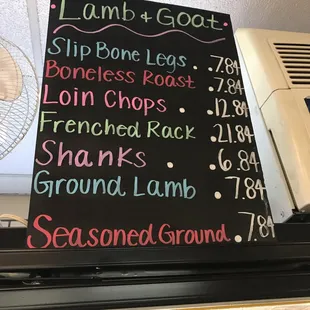 Lamb & Goat
Slip Bone Legs . 7.84
Boneless Roast . 7.84
Loin Chops . 12.84
Frenched Rack . 21.84
Shanks . 6.84
Ground Lamb . 7.84
Seasoned Ground . 7.84